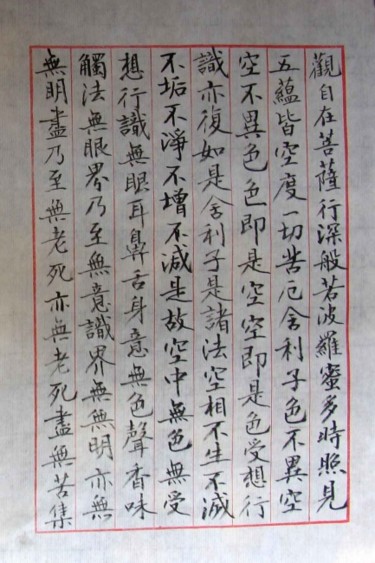 觀自在菩薩行深般若波羅蜜多時照見
五蘊皆空度一切苦厄舍利子色不異空
空不異色色即是空空即是色受想行
識亦復如是舍利子是諸法空相不生不滅
不垢不淨不增不減是故空中無色無受
想行識無眼耳鼻舌身意無色聲香味
觸法無眼界乃至無意識界無無明亦無
無明盡乃至無老死亦無老死盡無苦集